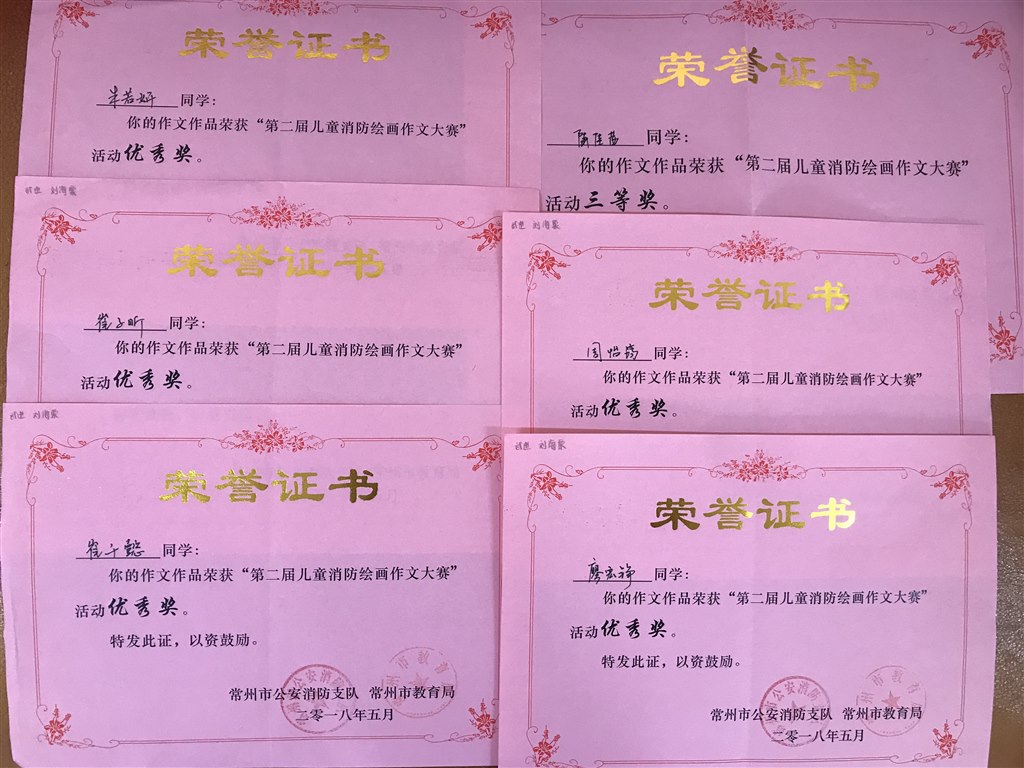 荣誉证书
朱若妍 同学：
你的作文作品荣获“第二届儿童消防绘画作文大赛”
活动优秀奖。
荣誉证书
同学：
你的作文作品荣获“第二届儿童消防绘画作文大赛”
活动三等奖。
刘海霞
荣誉证书
崔子昕 同学：
你的作文作品荣获“第二届儿童消防绘画作文大赛”
活动优秀奖。
刘海霞
荣誉证书
周怡 同学：
你的作文作品荣获“第二届儿童消防绘画作文大赛”
活动优秀奖。
刘海霞
荣誉证书
崔子懿 同学：
你的作文作品荣获“第二届儿童消防绘画作文大赛”
活动优秀奖。
特发此证，以资鼓励。
常州市公安消防支队 常州市教育局
二零一八年五月
刘海霞
荣誉证书
廖宏铮 同学：
你的作文作品荣获“第二届儿童消防绘画作文大赛”
活动优秀奖。
特发此证，以资鼓励。
常州市公安消防支队 常州市教育局
二零一八年五月